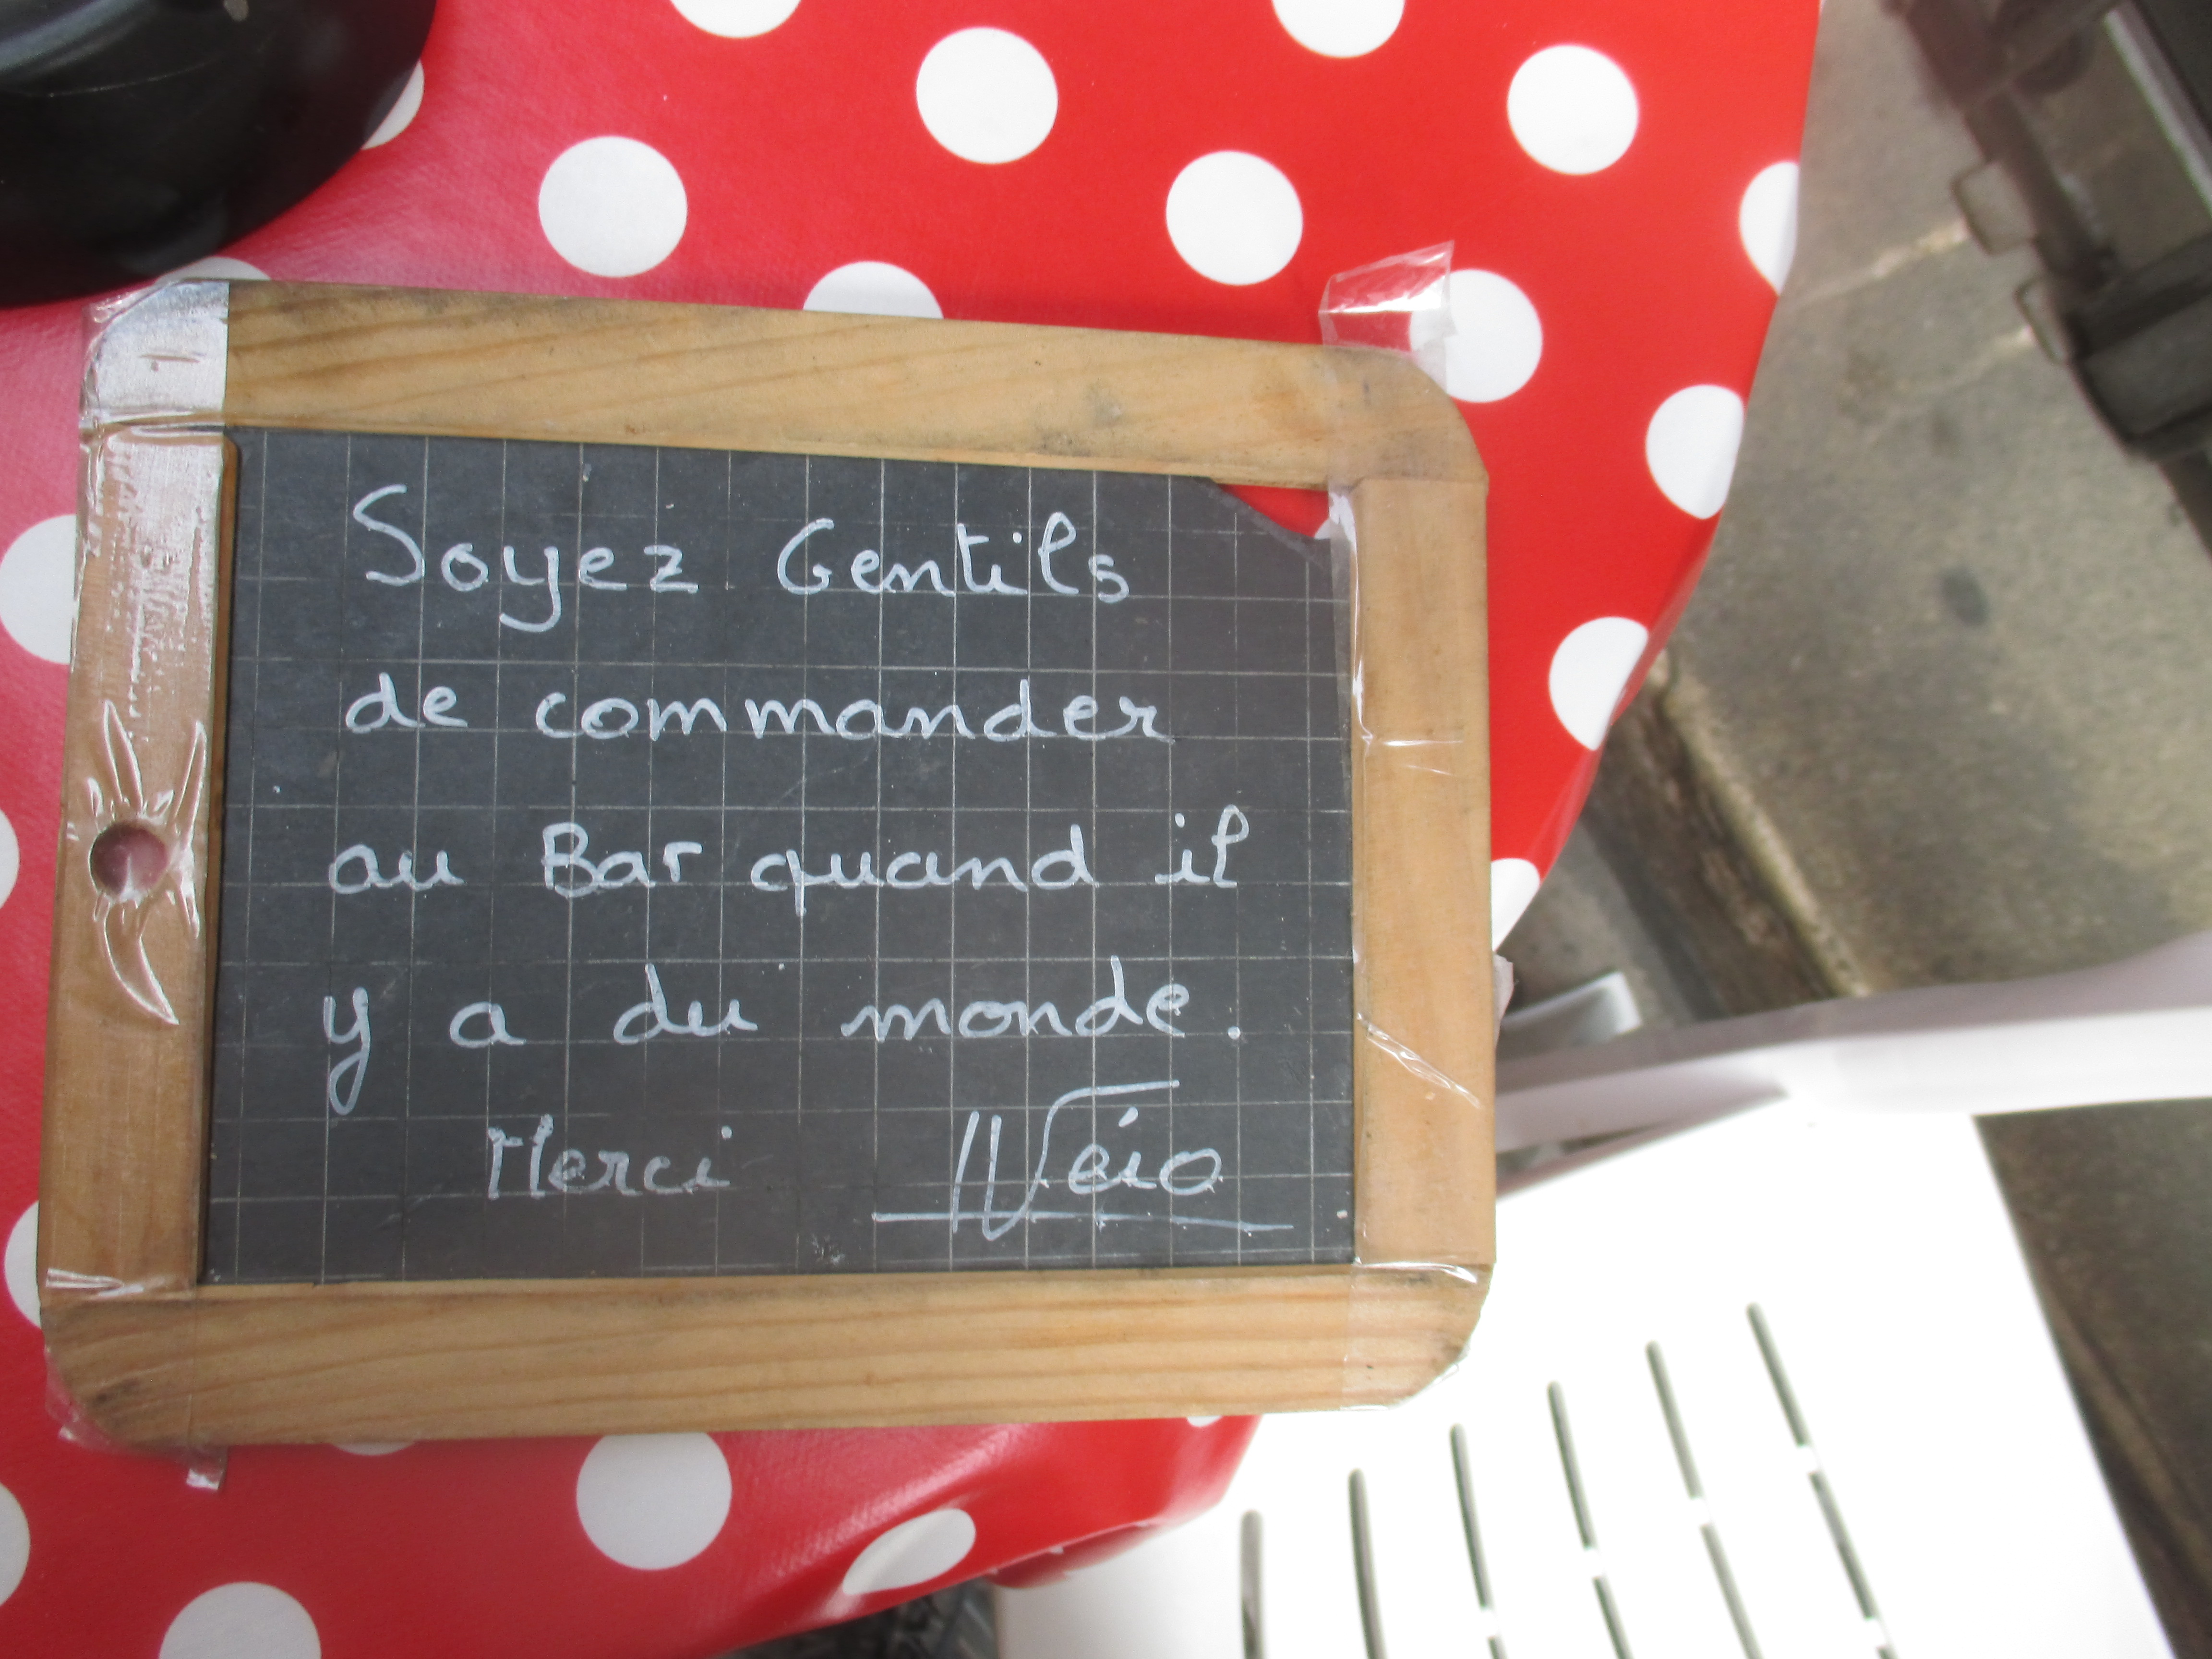 Soyez Gentils
de commander
au Bar quand il
y a du monde.
Merci